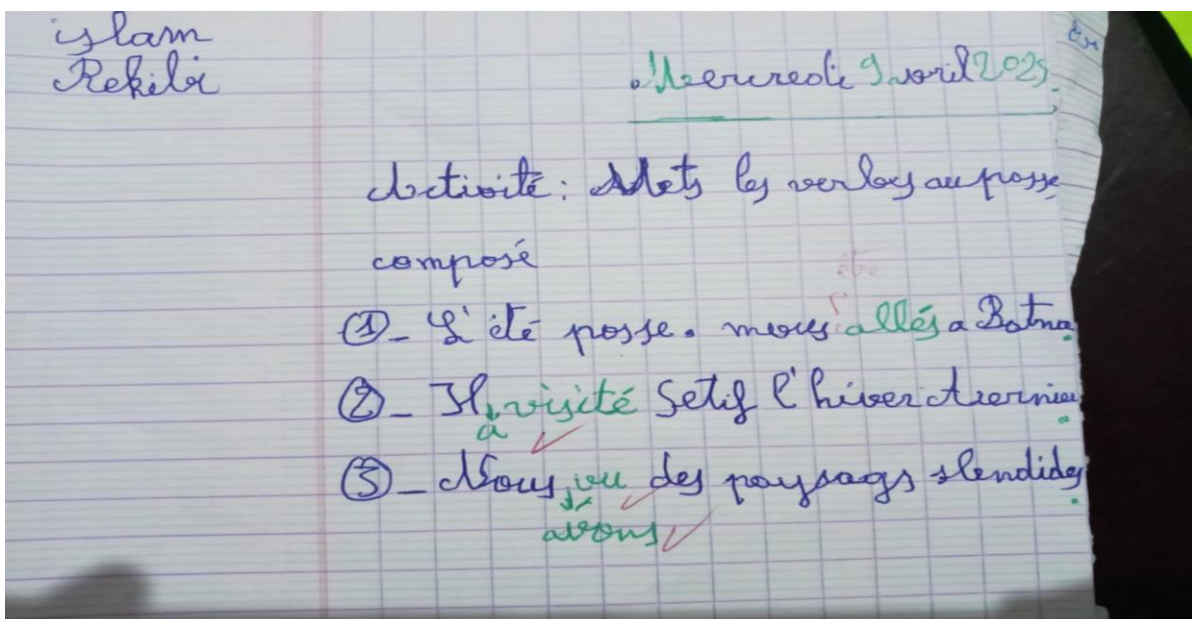 islam
Rekibi
Mercredi 9 avril 2025
Activité : Mets les verbes au passe
composé
être
① - L'été passe. nous allés a Batna.
② - Il visité Setif l'hiver dernier.
a
③ - Nous vu des paysags slendides.
avons